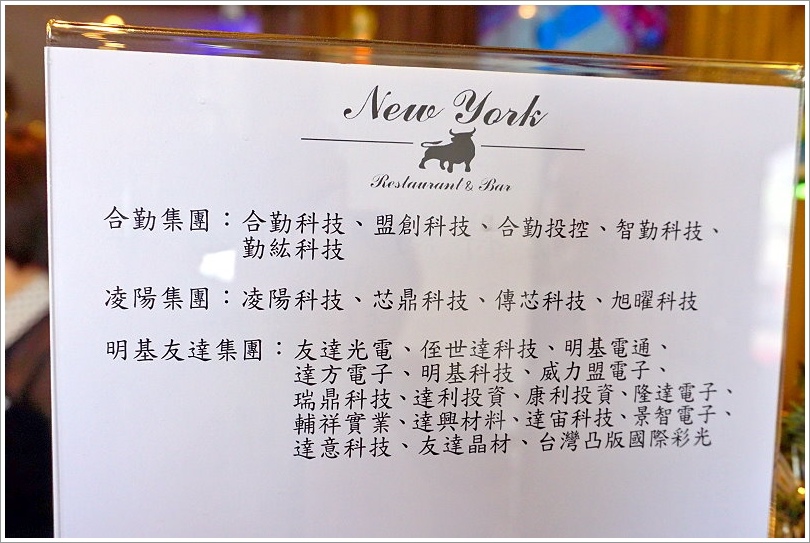 New York
Restaurant & Bar
合勤集團：合勤科技、盟創科技、合勤投控、智勤科技、
勤紘科技
凌陽集團：凌陽科技、芯鼎科技、傳芯科技、旭曜科技
明基友達集團：友達光電、侄世達科技、明基電通、
達方電子、明基科技、威力盟電子、
瑞鼎科技、達利投資、康利投資、隆達電子、
輔祥實業、達興材料、達宙科技、景智電子、
達意科技、友達晶材、台灣凸版國際彩光